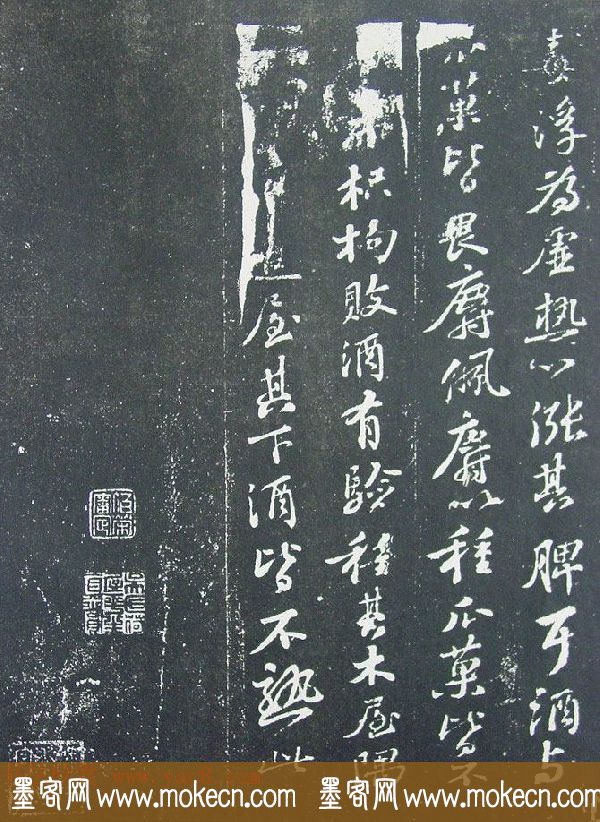 浮為虛热以漲其脾耳酒与
菓皆畏麝佩麝以種瓜菓皆不
枳枸敗酒有驗種其木屋隅
造屋其下酒皆不熟
墨客网 www.mokecn.com 墨客网 www.mokecn.com